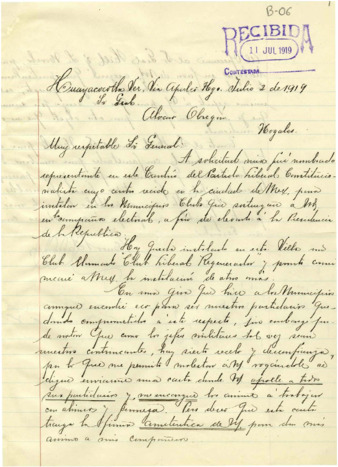 B-06
RECIBIDA
11 JUL 1919
CONTESTADA
Huayacocotla, Ver. Via Apulco Hgo. Julio 2 de 1919
Sr. Gral.
Alvaro Obregon
Nogales.
Muy respetable Sr General:
A solicitud mia fuí nombrado
representante en este Canton del Partido Liberal Constitucio-
nalista cuyo centro reside en la ciudad de Mex, para
instalar en los Municipios Clubs que sostengan á Vd,
en campaña electoral, a fin de elevarlo á la Presidencia
de la Republica.
Hoy quedo instalado en esta Villa un
Club Liberal Regenerador y pronto comu-
nicaré a Mex la instalación de otros mas.
En una gira que hice a los Municipios
aunque encontré eco para ser nuestros partidarios que-
dando comprometidos á este respecto, sin embargo pu-
de notar que como los jefes militares tal vez sean
nuestros contrincantes, hay cierto recelo y desconfianza,
por lo que me permito molestar á Vd rogandole, se
digne enviarme una carta donde Vd afecte a todos
sus partidarios y me encargue los anime á trabajar
con ahinco y firmeza. Pero deseo que esta carta
traiga la firma autentica de Vd para dar mas
animo a mis compañeros.